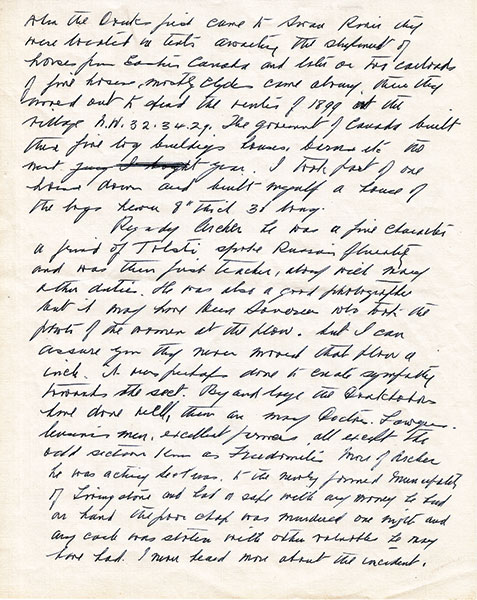 when the Douks first came to Swan River they
were located in tents awaiting the shipment of
horses from Eastern Canada and later on two carloads
of fine horses, mostly Clydes came along, then they
moved out to spend the winter of 1899 at the
village N.W. 32.34.29. The goverment of Canada built
them five log buildings houses, barns etc the
next year. I took part of one
house down and built myself a house of
the logs hewn 8" thick 30 long.
Regady Archer he was a fine character
a friend of Tolsti spoke Russian fluently
and was their first teacher, along with many
other duties. He was also a good photographer
but it may have been who took the
photo of the women at the plow. but I can
assure you they never moved that plow a
inch. it was perhaps done to create sympathy
towards the sect. By and large the Doukhobors
have done well, there are many Doctors. Lawyers.
business men, excellent farmers, all except the
odd section known as Freedomites. More of Archer
he was acting sec to the newly formed Municipality
of Livingstone and had a safe with any money he had
on hand the poor chap was murdered one night and
any cash was stolen with other valuables he may
have had. I never heard more about the incident.